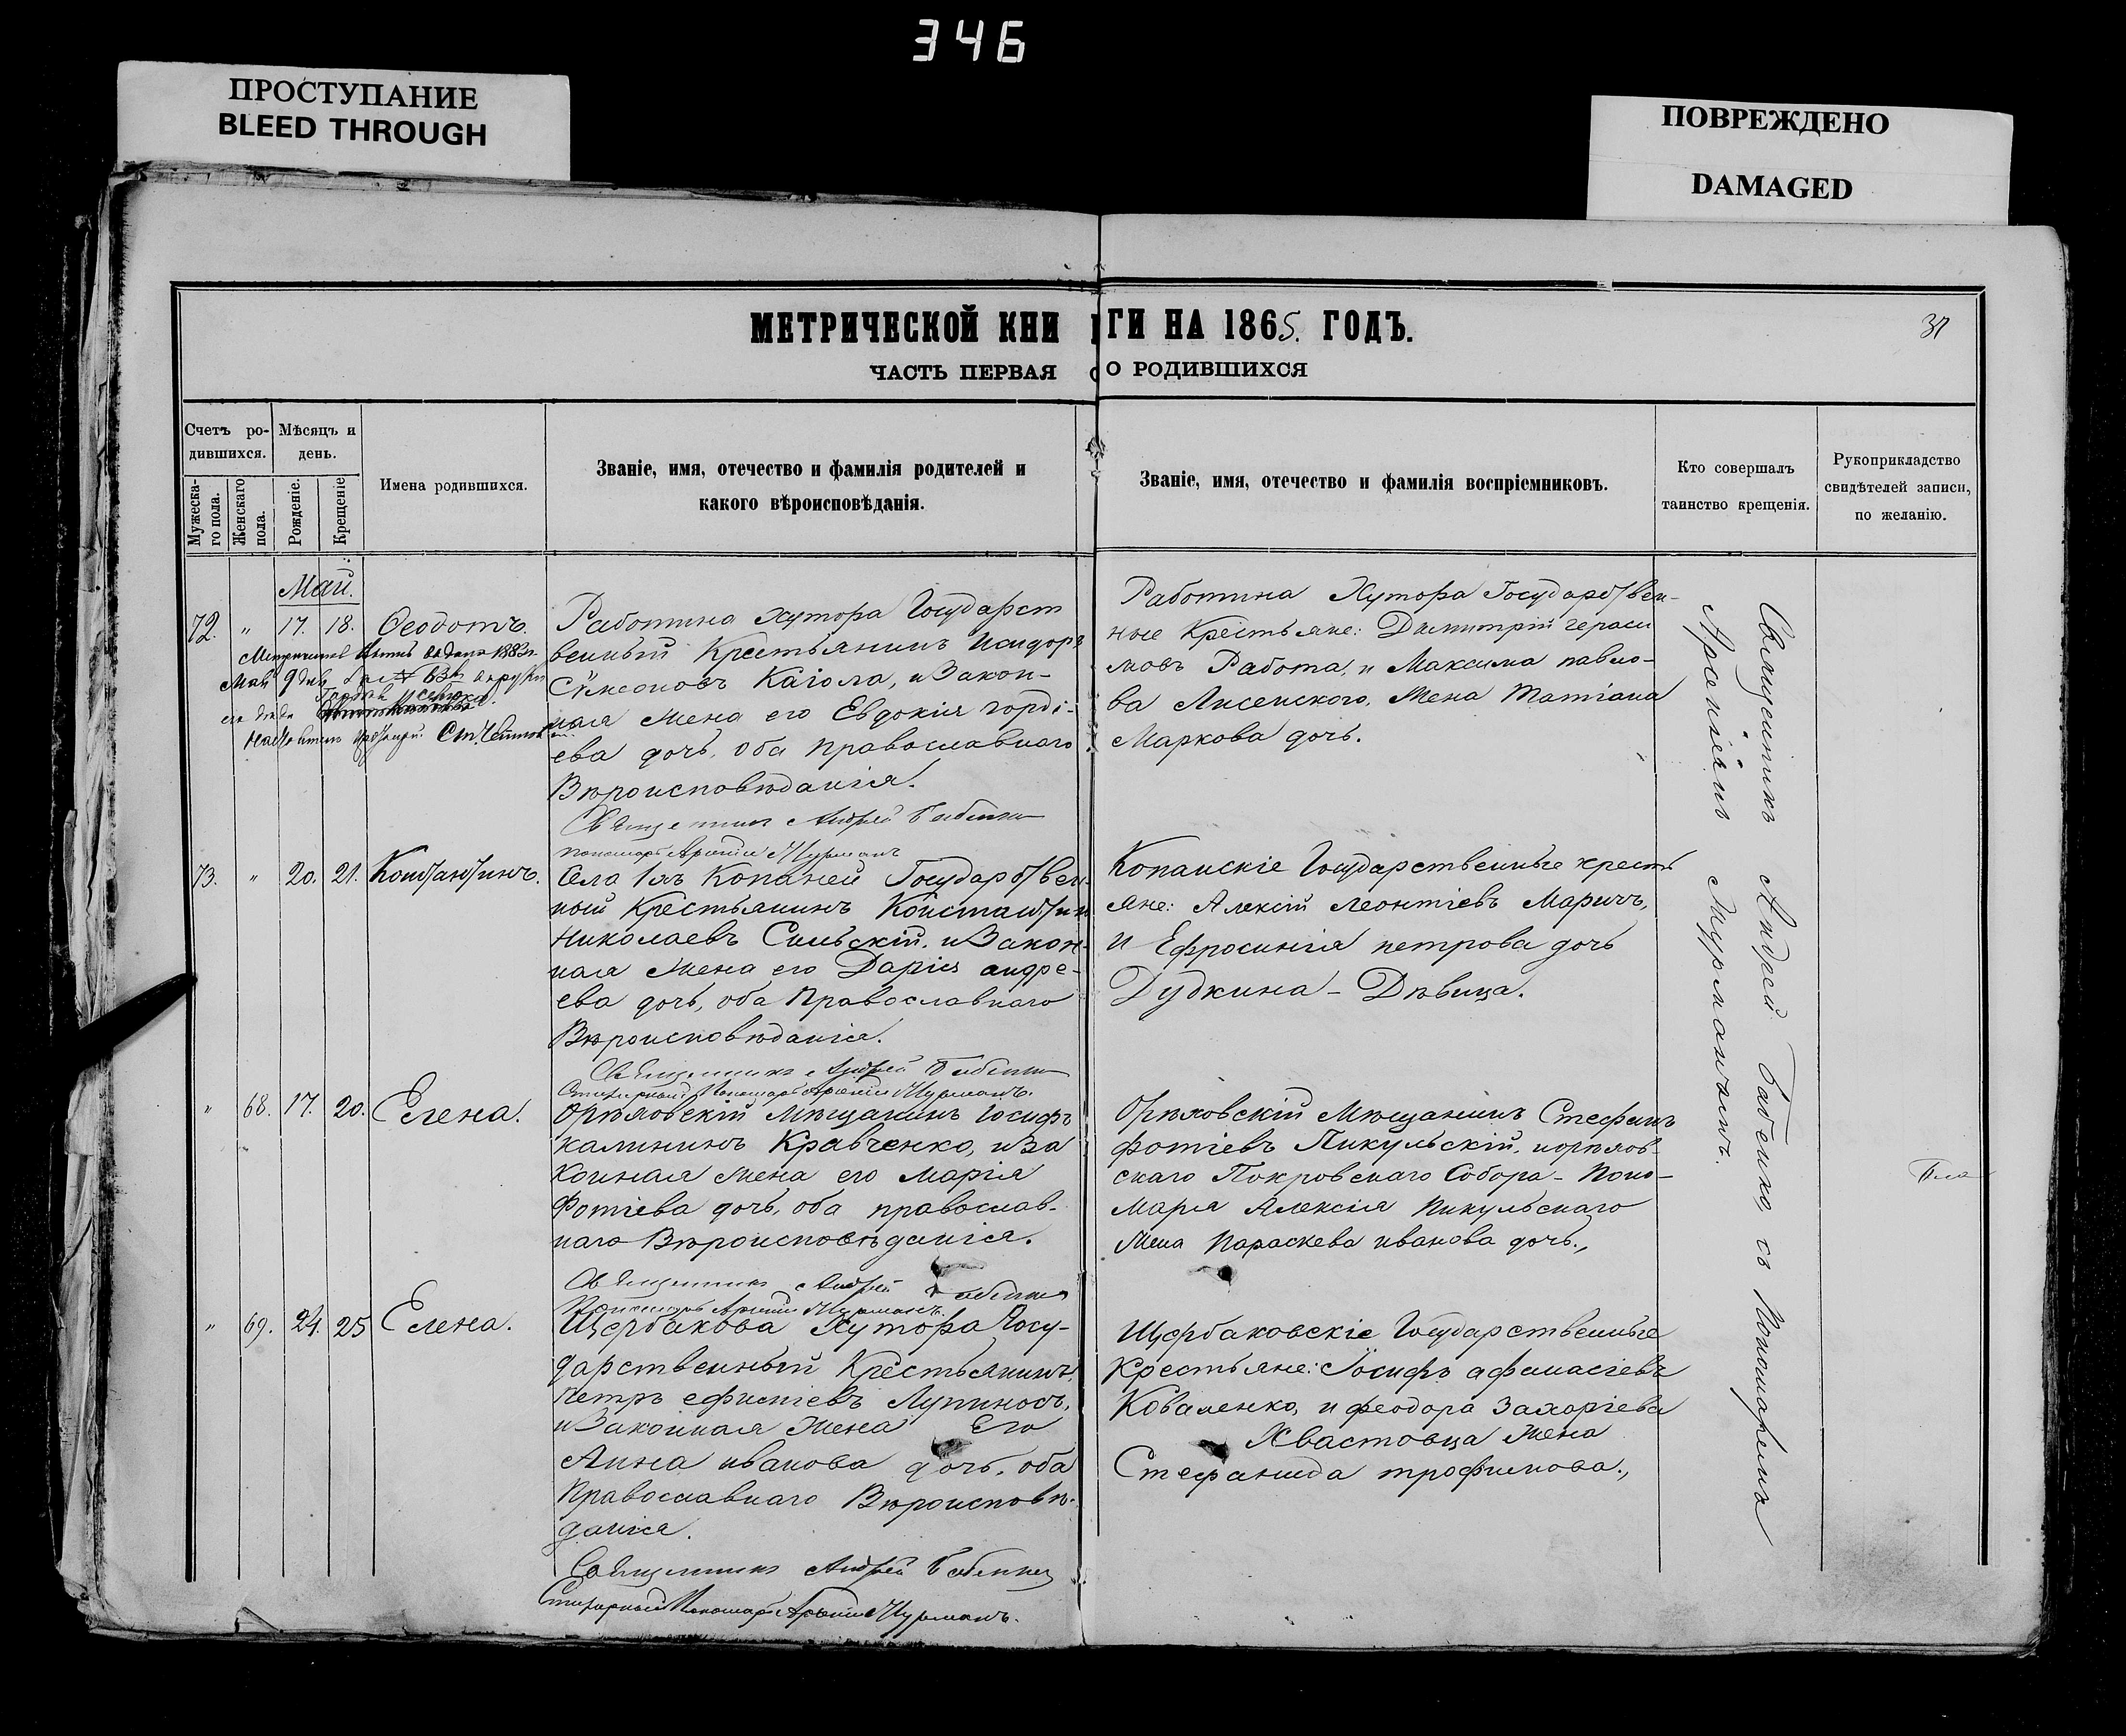 346
ПРОСТУПАНИЕ
BLEED THROUGH
ПОВРЕЖДЕНО
DAMAGED
МЕТРИЧЕСКОЙ КНИГИ НА 1865. ГОДЪ.
37
ЧАСТЬ ПЕРВАЯ О РОДИВШИХСЯ
Счетъ ро-
дившихся.
Мѣсяцъ и
день.
Мужеска-
го пола.
Женскаго
пола.
Рожденіе.
Крещеніе
Имена родившихся.
Званіе, имя, отечество и фамилія родителей и
какого вѣроисповѣданія.
Званіе, имя, отечество и фамилія воспріемниковъ.
Кто совершалъ
таинство крещенія.
Рукоприкладство
свидѣтелей записи,
по желанію.
Май.
72. " 17. 18. Ѳеодотъ.
Май 9 дня
Работина хутора Государст
венный Крестьянинъ Исидоръ
Сѵмеоновъ Каіола, и Закон-
ная жена его Евдокія горді-
ева дочь, оба православнаго
Вѣроисповѣданія.
Священникъ Андрей Бабенко
пономарь Арсеній Мурманъ
Работина Хутора Государствен-
ные Крестьяне: Димитрій гераси
мовъ Работа, и Максима павло-
ва Лисенского, жена Татіана
Маркова дочь.
73. " 20. 21. Константинъ.
Села 1хъ Копаней Государствен-
ный Крестьянинъ Константинъ
Николаевъ Сильскій, и Закон-
ная жена его Дарія андре-
ева дочь, оба Православнаго
Вѣроисповѣданія.
Священникъ Андрей Бабенко
Стихарный Пономарь Арсеній Мурманъ.
Копанскіе Государственные кресть
яне: Алексій Леонтіевъ Маричъ,
и Ефросинія петрова дочь
Дудкина - Дѣвица.
" 68. 17. 20. Елена.
Орѣховскій Мѣщанинъ Іосифъ
калининъ Кравченко, и За
конная жена его Марія
Фотіева дочь, оба православ-
наго Вѣроисповѣданія.
Священникъ Андрей Бабенко
Пономарь Арсеній Мурманъ.
Орѣховскій Мѣщанинъ Стефанъ
фотіевъ Пикульскій, и орѣхов-
скаго Покровскаго Собора - Поно-
маря Алексія пикульскаго
жена Параскева иванова дочь.,
" 69. 24. 25 Елена.
Щербакова Хутора Госу-
дарственный Крестьянинъ,
петръ ефиміевъ Лупиносъ,
и Законная жена Его
Анна иванова дочь, оба
Православнаго Вѣроисповѣ-
данія.
Священникъ Андрей Бабенко
Стихарный Пономарь Арсеній Мурманъ.
Щербаковскіе Государственные
крестьяне: Іосифъ афанасіевъ
Коваленко, и феодора Захаріева
Хвастовца жена
Стефанида трофимова.,
Священникъ Андрей Бабенко съ Пономаремъ
Арсеніемъ Мурманомъ.